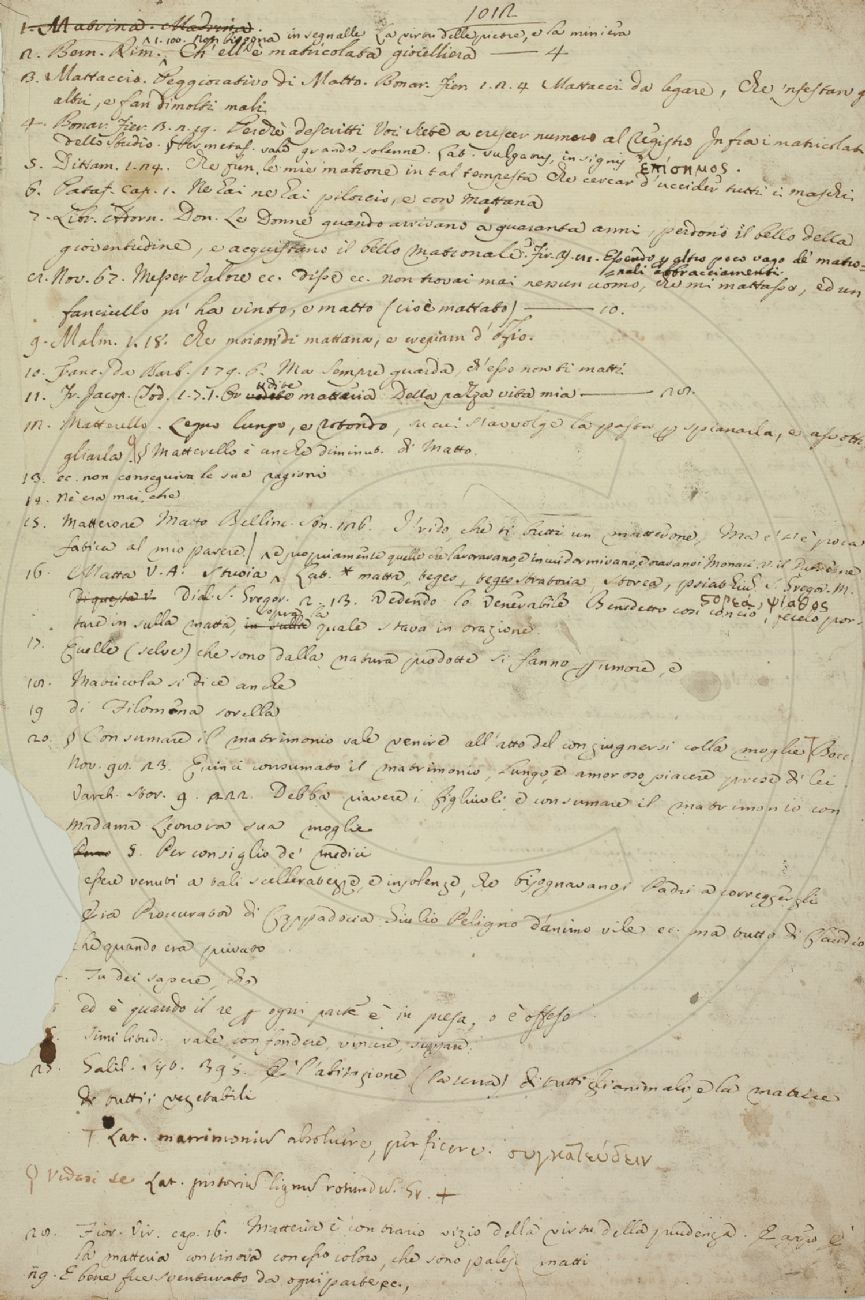 1012
1. Matrina. Madrina.
1.100. non bisogna insegnalle La virtu delle pietre, e la miniera
2. Bern. Rim. Ch' ell' è matricolata gioielliera — 4
3. Mattaccio. Peggiorativo di Matto. Bonar. Fier. 1. 2. 4 Mattacci da legare, che 'nfestano g
altri, e fan dimolti mali
4. Bonar. Fier. 3. Perchè descritti Voi siete a crescer numero al Registro In fra i matricolati
dello Studio. § Per metaf. vale grande solenne. Lat. vulgaris, insignis ἐπίσημος.
5. Dittam. 1. 24. Che fun, le mie matrone in tal tempesta Che cercar d'uccider tutti i maschi
6. Pataf. Cap. 1. Ne hai ne hai piloccio, e con mattana
7. Libr. Adorn. Don. Le Donne quando arrivano a quaranta anni, perdono il bello della
gioventudine, e acquistano il bello matronale. Essendo altro poco vago de' matro-
nali abbracciamenti
Nov. 67. Messer Valore ec. disse ec. non trovai mai nessun uomo, che mi mattasse, ed un
fanciullo m' ha vinto, e matto (cioè mattato) — 10.
9. Malm. 1. 18. Che moiam di mattana, e crepiam d' ozio.
10. Franc. da Barb. 179. 6. Ma sempre guarda, ch' esso non ti matti.
11. Fr. Jacop. Tod. 1. 7. 1. Or udite matteria Della pazza vita mia —
12. Matterello. Legno lungo, e rotondo, su cui s'avvolge la pasta p spianarla, e assotti
gliarla. § Matterello è anche diminut. di Matto.
13. ec. non conseguiva le sue ragioni
14. Nè era mai, che
15. Matterone Matto Bellin. Son. 126. I' rido, che ti butti un matterone, Ma e' s' è poca
fatica al mio parere
16. Matta V. A. Stuoia Lat. matta, teges, storea, psiathium S. Gregor. M.
Dial. S. Gregor. 2. 13. Vedendo lo venerabile Benedetto così concio, fecelo por-
tare in sulla matta, sopra la quale stava in orazione.
17. Quelle (selve) che sono dalla natura prodotte si fanno p umore, e
18. Matricola si dice anche
19 di Filomena sorella
20. § Consumare il matrimonio vale venire all'atto del congiugnersi colla moglie Bocc.
Nov. 23. Quinci consumato il matrimonio, lungo, e amoroso piacere prese di lei
Varch. Stor. 9. 222. Debba riavere i figliuoli e consumare il matrimonio con
Madama Leonora sua moglie
§. Per consiglio de' medici
esser venuti a tali scelleratezze, e insolenze, che bisognavano i Padri a correggergli
Era Procurator di Cappadocia Giulio Peligno d'animo vile ec. ma tutto di Claudio
che quando era privato
Tu dei sapere, che
ed è quando il re p ogni parte è in presa, o è offeso
Similitud. vale confondere, vincere, superare.
Galil. Sist. 395. E' l'abitazione (la terra) di tutti gli animali, e la matrice
di tutti i vegetabili
† Lat. matrimonium absolvere, perficere. συγκαθεύδειν
Vedasi se Lat. pistorium lignum rotundum. Gr. +
28. Fior. Vir. cap. 16. Matteria è contrario vizio della virtu della prudenza.
la matteria continova con esso coloro, che sono palesi matti
29. E bene fue sventurato da ogni parte ec.,